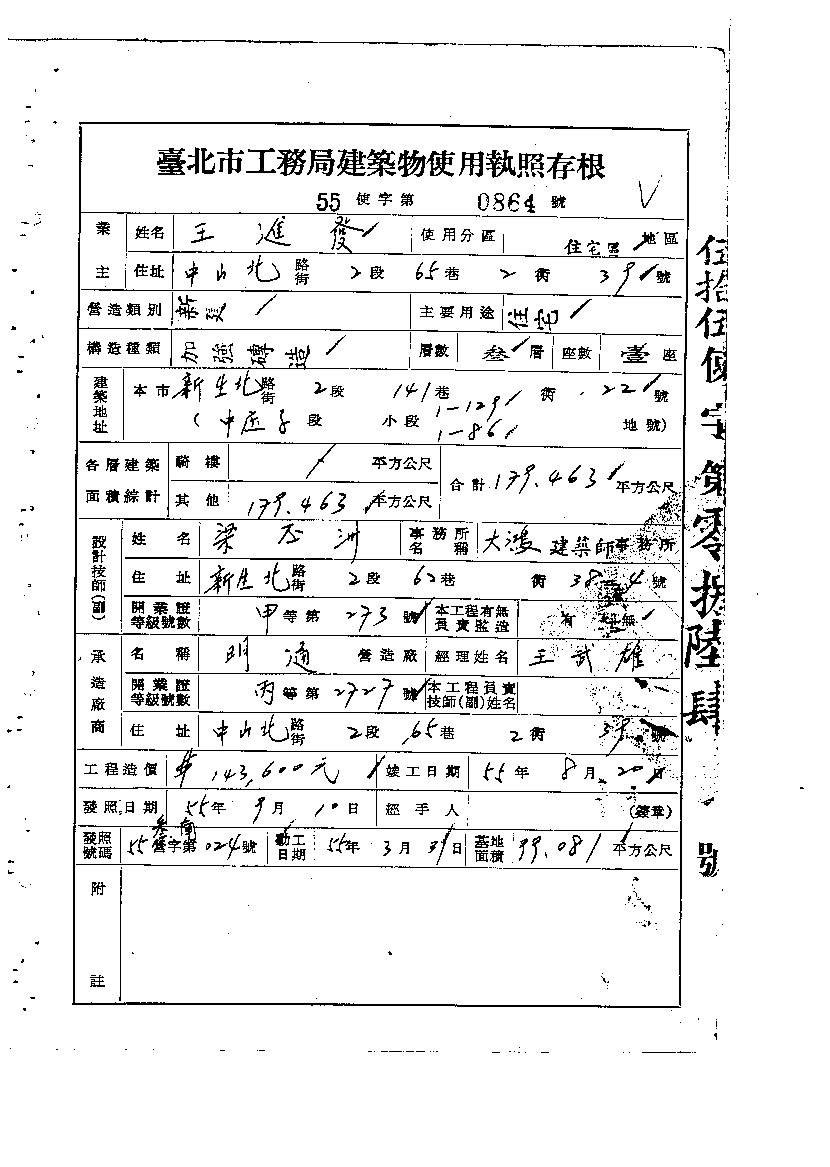 臺北市工務局建築物使用執照存根
55 使字第 0864 號
業主 姓名 王進發 使用分區 住宅區 地區
住址 中山北 路街 2段 65巷 2衖 39號
營造類別 新建 主要用途 住宅
構造種類 加強磚造 層數 叁層 座數 壹座
建築地址 本市 新生北 路街 2段 141巷 衖 22號
(中庄子段 小段 1-129 1-86 地號)
各層建築面積綜計 騎樓 平方公尺 合計 179.463 平方公尺
其他 179.463 平方公尺
設計技師(副) 姓名 梁 洲 事務所名稱 大鴻建築師事務所
住址 新生北 路街 2段 62巷 衖 38-4號
開業證等級號數 甲等第 273號 本工程有無負責監造 有 無
承造廠商 名稱 明通 營造廠 經理姓名 王武雄
開業證等級號數 丙等第 2727號 本工程負責技師(副)姓名
住址 中山北 路街 2段 65巷 2衖 39號
工程造價 143,600元 竣工日期 55年 8月 20日
發照日期 55年 9月 10日 經手人 (簽章)
發照號碼 55 營字第 024號 動工日期 55年 3月 31日 基地面積 99.081 平方公尺
附註
伍拾伍使字第零捌陸肆號